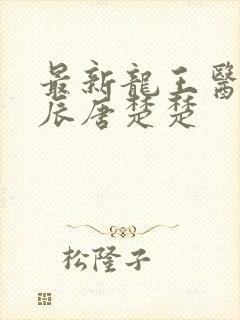 最新龍王醫
辰唐楚楚
松隆子